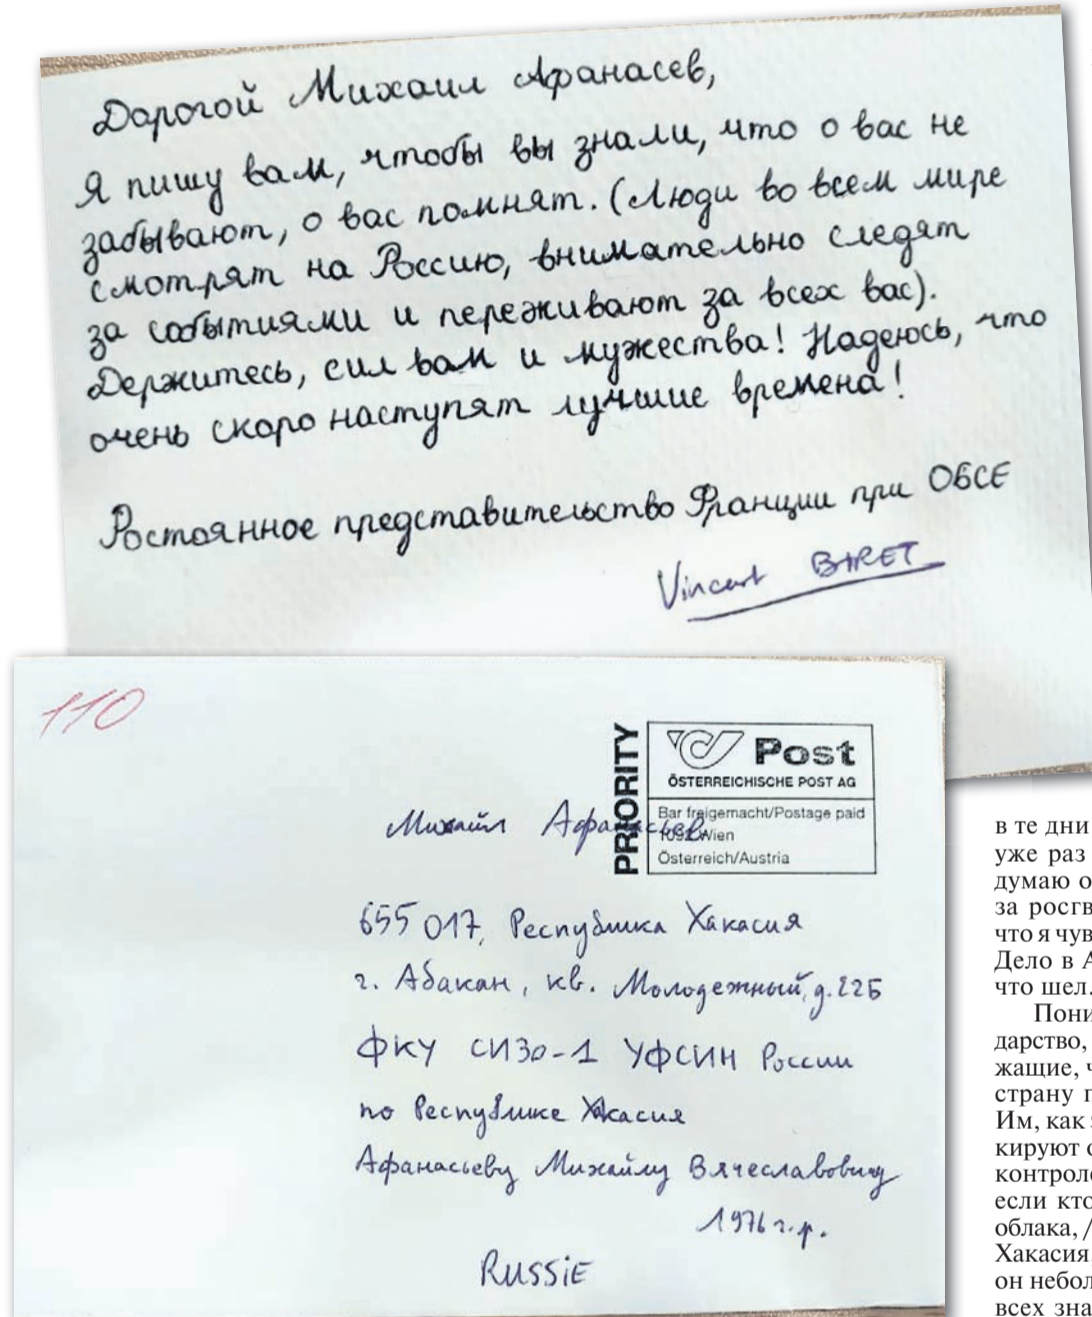 Дорогой Михаил Афанасев,
Я пишу вам, чтобы вы знали, что о вас не
забывают, о вас помнят. (Люди во всем мире
смотрят на Россию, внимательно следят
за событиями и переживают за всех вас).
Держитесь, сил вам и мужества! Надеюсь, что
очень скоро наступят лучшие времена!
Постоянное представительство Франции при ОБСЕ
Vincent
110
PRIORITY
Post
ÖSTERREICHISCHE POST AG
Bar freigemacht/Postage paid
1092 Wien
Österreich/Austria
Михаил Афанасьев
655017, Республика Хакасия
г. Абакан, кв. Молодежный, д. 22Б
ФКУ СИЗО-1 УФСИН России
по Республике Хакасия
Афанасьеву Михаилу Вячеславовичу
1976 г.р.
RUSSIE
в те дни
уже раз
думаю о
за росгв
что я чув
Дело в А
что шел.
Пони
дарство,
жащие, ч
страну п
Им, как
кируют о
контроле
если кто
облака, /
Хакасия
он небол
всех зна